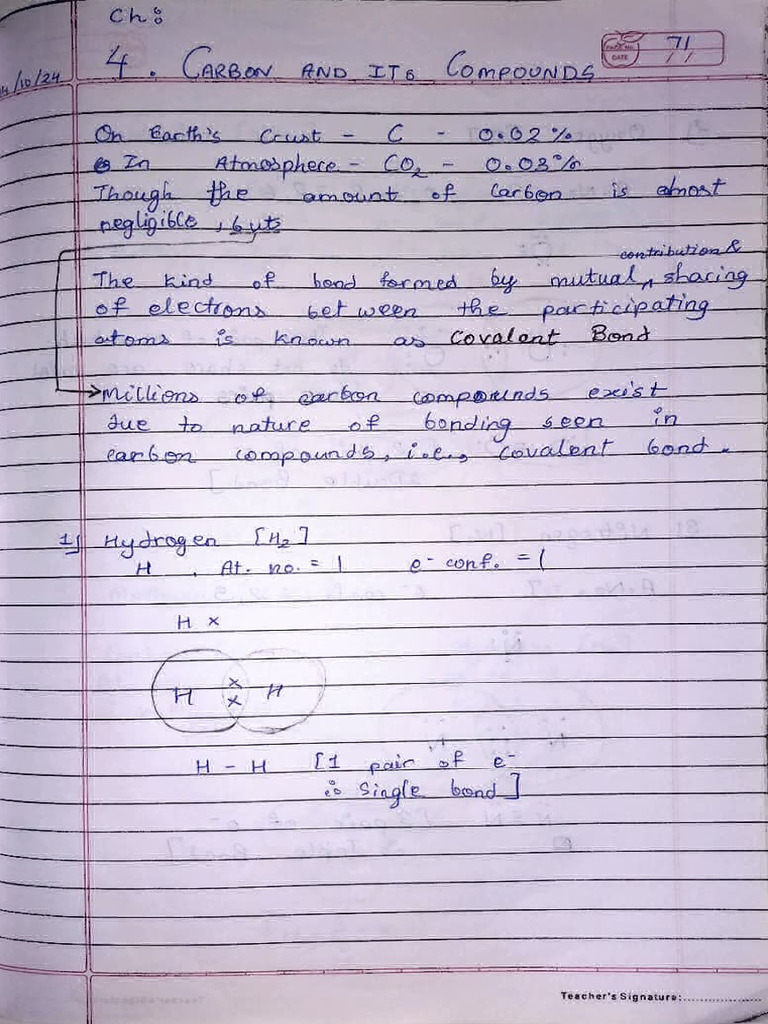 Ch:
4. CARBON AND ITS COMPOUNDS
71
PAGE NO.
DATE / /
4/10/24
On Earth's Crust - C - 0.02%
In Atmosphere - CO₂ - 0.03%
Though the amount of carbon is almost
negligible, buts
contribution &
The kind of bond formed by mutual ^ sharing
of electrons between the participating
atoms is known as Covalent Bond
→ Millions of carbon compounds exist
due to nature of bonding seen in
carbon compounds, i.e., covalent bond.
1] Hydrogen [H₂]
H , At. no. = 1 e⁻ conf. = 1
H ×
H × × H
H - H [1 pair of e⁻
∴ Single bond]
Teacher's Signature: